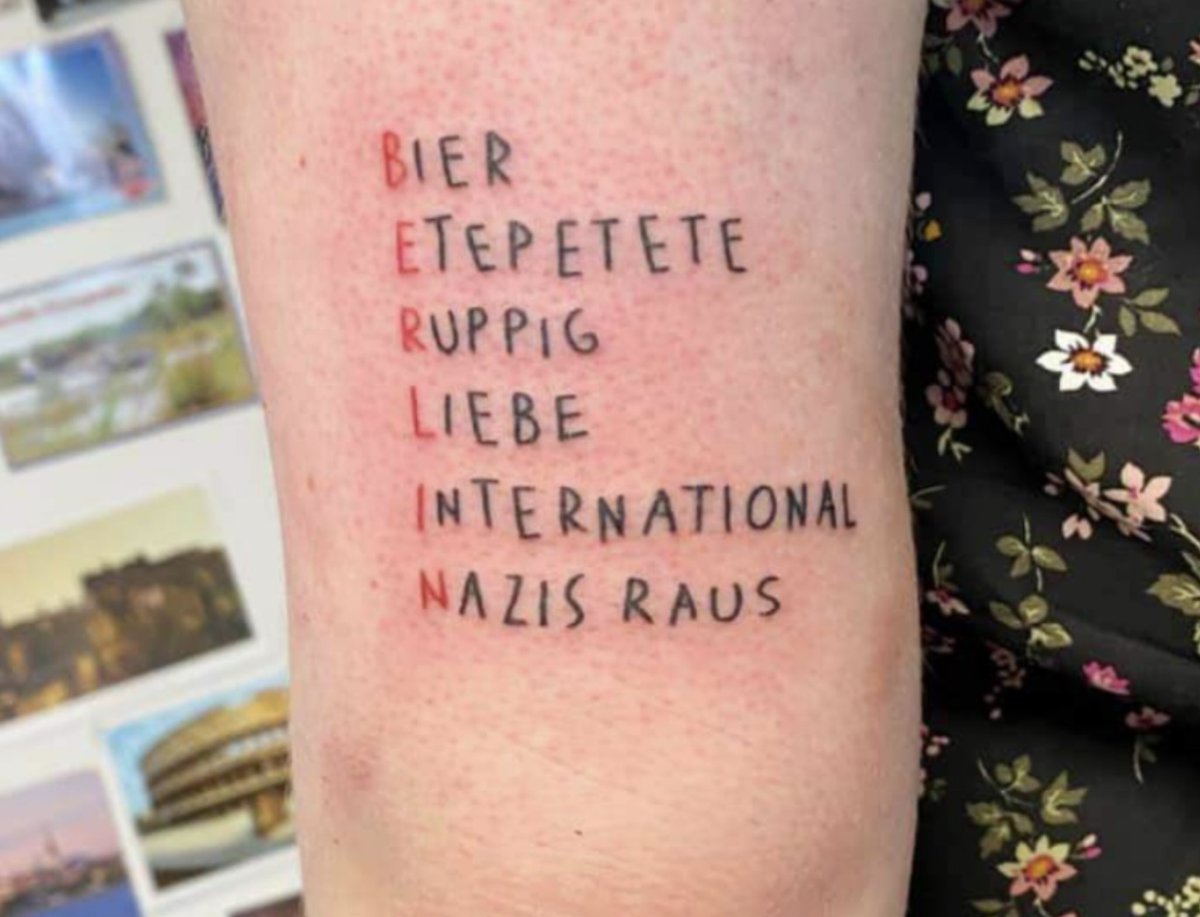 BIER
ETEPETETE
RUPPIG
LIEBE
INTERNATIONAL
NAZIS RAUS